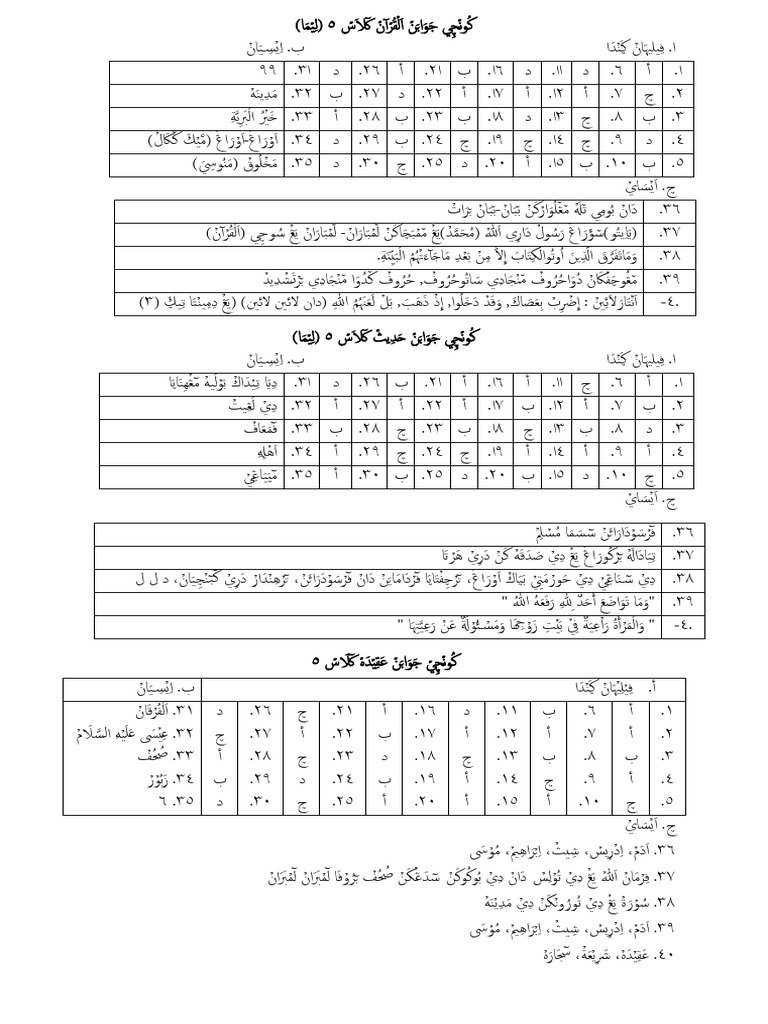 كونچي جوابن القرآن كلاس ٥ (ليما)
ا. فيليهان گندا ب. ايسيان
١. أ ٦. د ١١. د ١٦. ب ٢١. أ ٢٦. د ٣١. ٩٩
٢. ج ٧. أ ١٢. أ ١٧. أ ٢٢. د ٢٧. ب ٣٢. مدينه
٣. ب ٨. ج ١٣. د ١٨. ب ٢٣. ب ٢٨. أ ٣٣. خَيْرُ الْبَرِيَّةِ
٤. د ٩. ج ١٤. ج ١٩. ج ٢٤. ب ٢٩. د ٣٤. اوراڠ-اوراڠ
٥. ب ١٠. ب ١٥. أ ٢٠. د ٢٥. ج ٣٠. د ٣٥. مخلوق (منوسي)
ج. ايساي
٣٦. دان بومي تله مڠلواركن ببان-ببان برات
٣٧. (يايتو) سؤراڠ رسول داري الله (محمد) يڠ ممباچاكن لمباران- لمباران يڠ سوچي (القرآن)
٣٨. وَمَاتَفَرَّقَ الَّذِينَ أُوتُوالكِتَابَ إِلاَّ مِنْ بَعْدِ مَاجَآءَتْهُمُ الْبَيِّنَةِ.
٣٩. مڠوچفكان دواحروف منجادي ساتوحروف, حروف كدوا منجادي برتشديد
٤٠- انتارلائين : إِضْرِبْ بِعَصَاكَ, وَقَدْ دَخَلُوا, إِذْ ذَهَبَ, بَلْ لَعَنَهُمُ اللهِ (دان لائين لائين) (يڠ دمينتا (٣)
كونچي جوابن حديث كلاس ٥ (ليما)
ا. فيليهان گندا ب. ايسيان
١. أ ٦. ج ١١. أ ١٦. أ ٢١. ب ٢٦. د ٣١. ديا تيداك بوليه مڠهينايا
٢. ب ٧. أ ١٢. ب ١٧. أ ٢٢. أ ٢٧. أ ٣٢. دي لڠيت
٣. د ٨. ب ١٣. ج ١٨. ب ٢٣. ج ٢٨. ب ٣٣. فمعاف
٤. أ ٩. أ ١٤. أ ١٩. ج ٢٤. ج ٢٩. أ ٣٤. اَهْلِهِ
٥. ج ١٠. د ١٥. ب ٢٠. د ٢٥. ب ٣٠. أ ٣٥.
ج. ايساي
٣٦. فرسودارائن سسما مسلم
٣٧. تيادا له بركوراڠ يڠ دي صدقه كن دري هرتا
٣٨. دي سناڠي دي حورمتي بياك اوراڠ، ترچفتايا فرداماين دان فرسودرائن، ترهندار دري كبنچيان، د ل ل
٣٩. "وَمَا تَوَاضَعَ أَحَدٌ لِلهِ رَفَعَهُ اللهُ "
٤٠- " وَالْمَرْأَةُ رَاعِيَةٌ فِيْ بَيْتِ زَوْجِهَا وَمَسْئُوْلَةٌ عَنْ رَعِيَّتِهَا "
كونچي جوابن عقيدة كلاس ٥
أ. فيليهان گندا ب. ايسيان
١. أ ٦. ب ١١. د ١٦. أ ٢١. ج ٢٦. د ٣١. الفرقان
٢. أ ٧. أ ١٢. أ ١٧. ب ٢٢. أ ٢٧. ج ٣٢. عيسى عليه السلام
٣. ب ٨. ب ١٣. ج ١٨. د ٢٣. ج ٢٨. أ ٣٣. صحف
٤. أ ٩. ج ١٤. أ ١٩. ب ٢٤. د ٢٩. ب ٣٤. زبور
٥. ج ١٠. أ ١٥. أ ٢٠. أ ٢٥. ج ٣٠. د ٣٥. ٦
ج. ايساي
٣٦. ادم، ادريس، شيث، ابراهيم، موسى
٣٧. فرمان الله يڠ دي توليس دان دي بوكوكن سدڠكن صحف بروفا لمبران لمبران
٣٨. سورة يڠ دي تورونكن دي مدينه
٣٩. ادم، ادريس، شيث، ابراهيم، موسى
٤٠. عقيدة، شريعة، سجارة